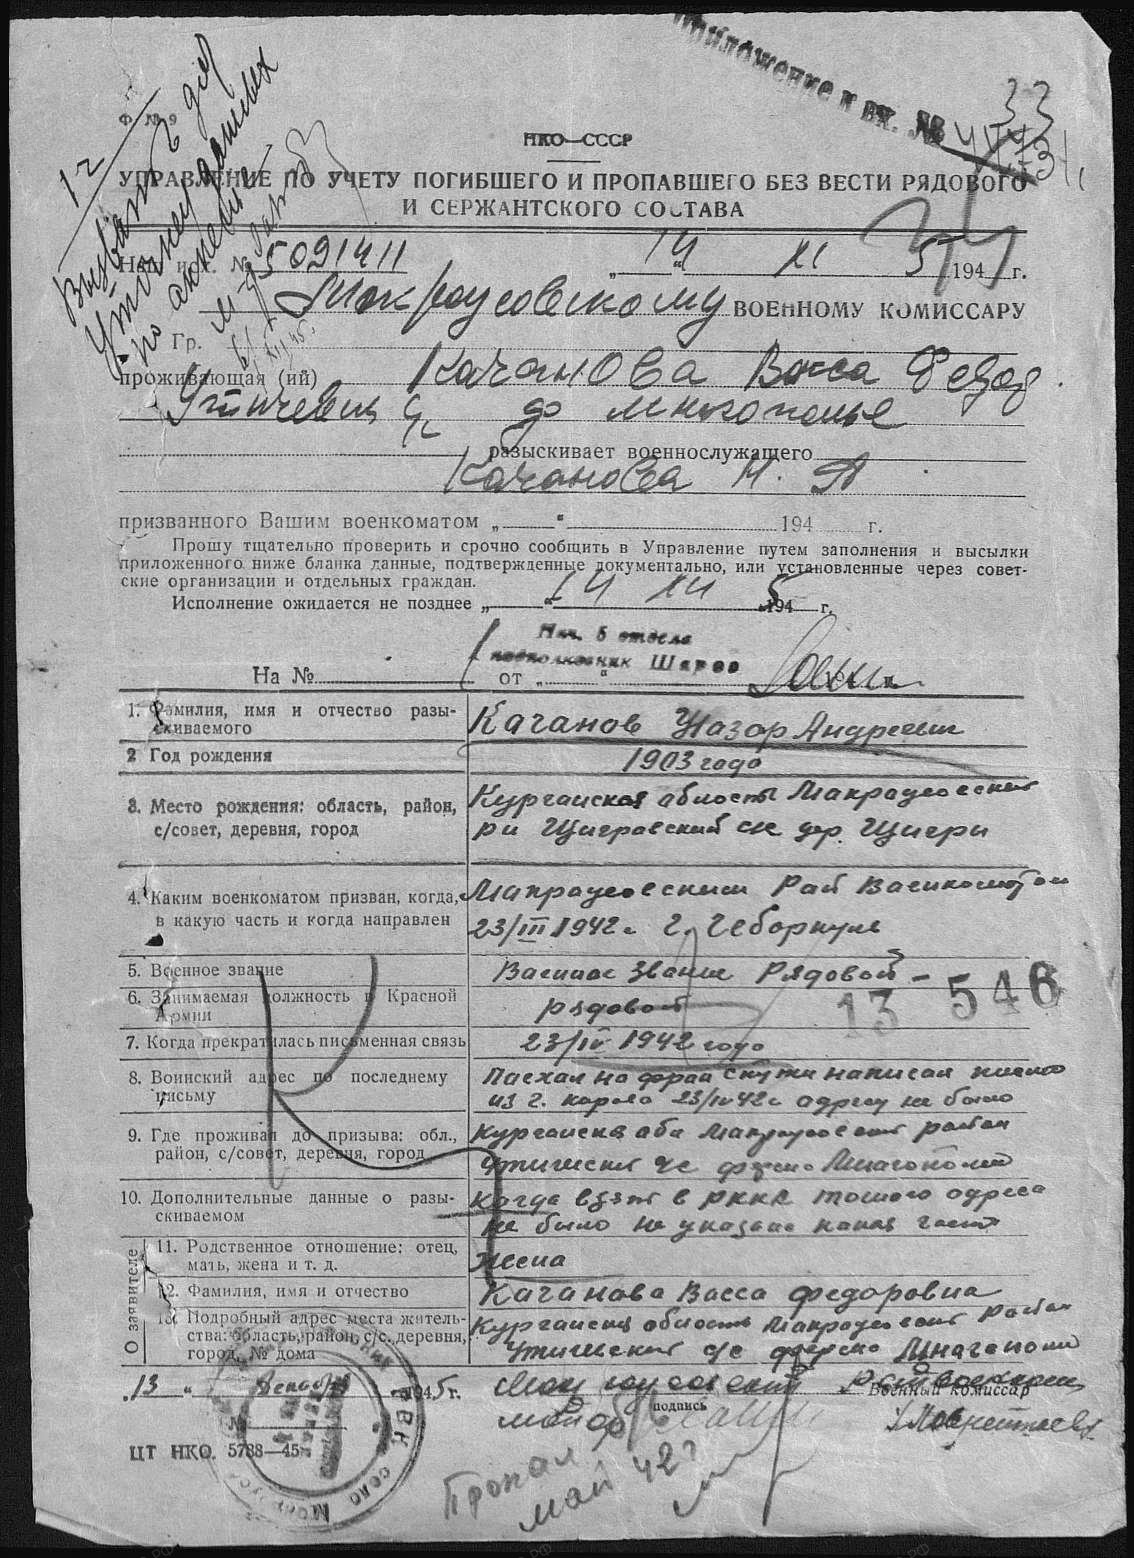 Приложение к вх. №
33
Ф № 9
НКО—СССР
УПРАВЛЕНИЕ ПО УЧЕТУ ПОГИБШЕГО И ПРОПАВШЕГО БЕЗ ВЕСТИ РЯДОВОГО
И СЕРЖАНТСКОГО СОСТАВА
Наш исх. № 5091411 „14 XI 5 194 г.
Макроусовскому ВОЕННОМУ КОМИССАРУ
Гр.
проживающая (ий) Качанова Васса Федор
Утичевский с/с до
разыскивает военнослужащего
Качанова Н. А
призванного Вашим военкоматом „ “ 194 г.
Прошу тщательно проверить и срочно сообщить в Управление путем заполнения и высылки
приложенного ниже бланка данные, подтвержденные документально, или установленные через совет-
ские организации и отдельных граждан.
Исполнение ожидается не позднее „14 “ XII 5 194 г.
Нач. 5 отдела
подполковник Шаров
На № от „ “
1. Фамилия, имя и отчество разы-
скиваемого
Качанов Назар Андреевич
2 Год рождения
1903 года
3. Место рождения: область, район,
с/совет, деревня, город
Курганской области Макроусовский
р-н Щигровский с/с дер. Щигри
4. Каким военкоматом призван, когда,
в какую часть и когда направлен
Макроусовским Рай Военкоматом
23/III 1942 г. г. Чебаркуль
5. Военное звание
Военное звание Рядовой
6. Занимаемая должность в Красной
Армии
рядовой
13 546
7. Когда прекратилась письменная связь
23/IV 1942 года
8. Воинский адрес по последнему
письму
Поехал на фронт с пути написал письмо
из г. 23/IV 42 г адресу не было
9. Где проживал до призыва: обл.,
район, с/совет, деревня, город
Курганская обл Макроусовский район
Утичевский с/с
10. Дополнительные данные о разы-
скиваемом
Когда взят в РККА точного адреса
не было не указано какая часть
О заявителе
11. Родственное отношение: отец,
мать, жена и т. д.
жена
12. Фамилия, имя и отчество
Качанова Васса Федоровна
13. Подробный адрес места житель-
ства: область, район, с/с, деревня,
город, № дома
Курганская область Макроусовский район
Утичевский с/с
„13 “ декабря 1945 г.
Макроусовский Райвоенком
Военный комиссар
майор
подпись
№
ЦТ НКО. 5788—45
Пропал
май 42 г